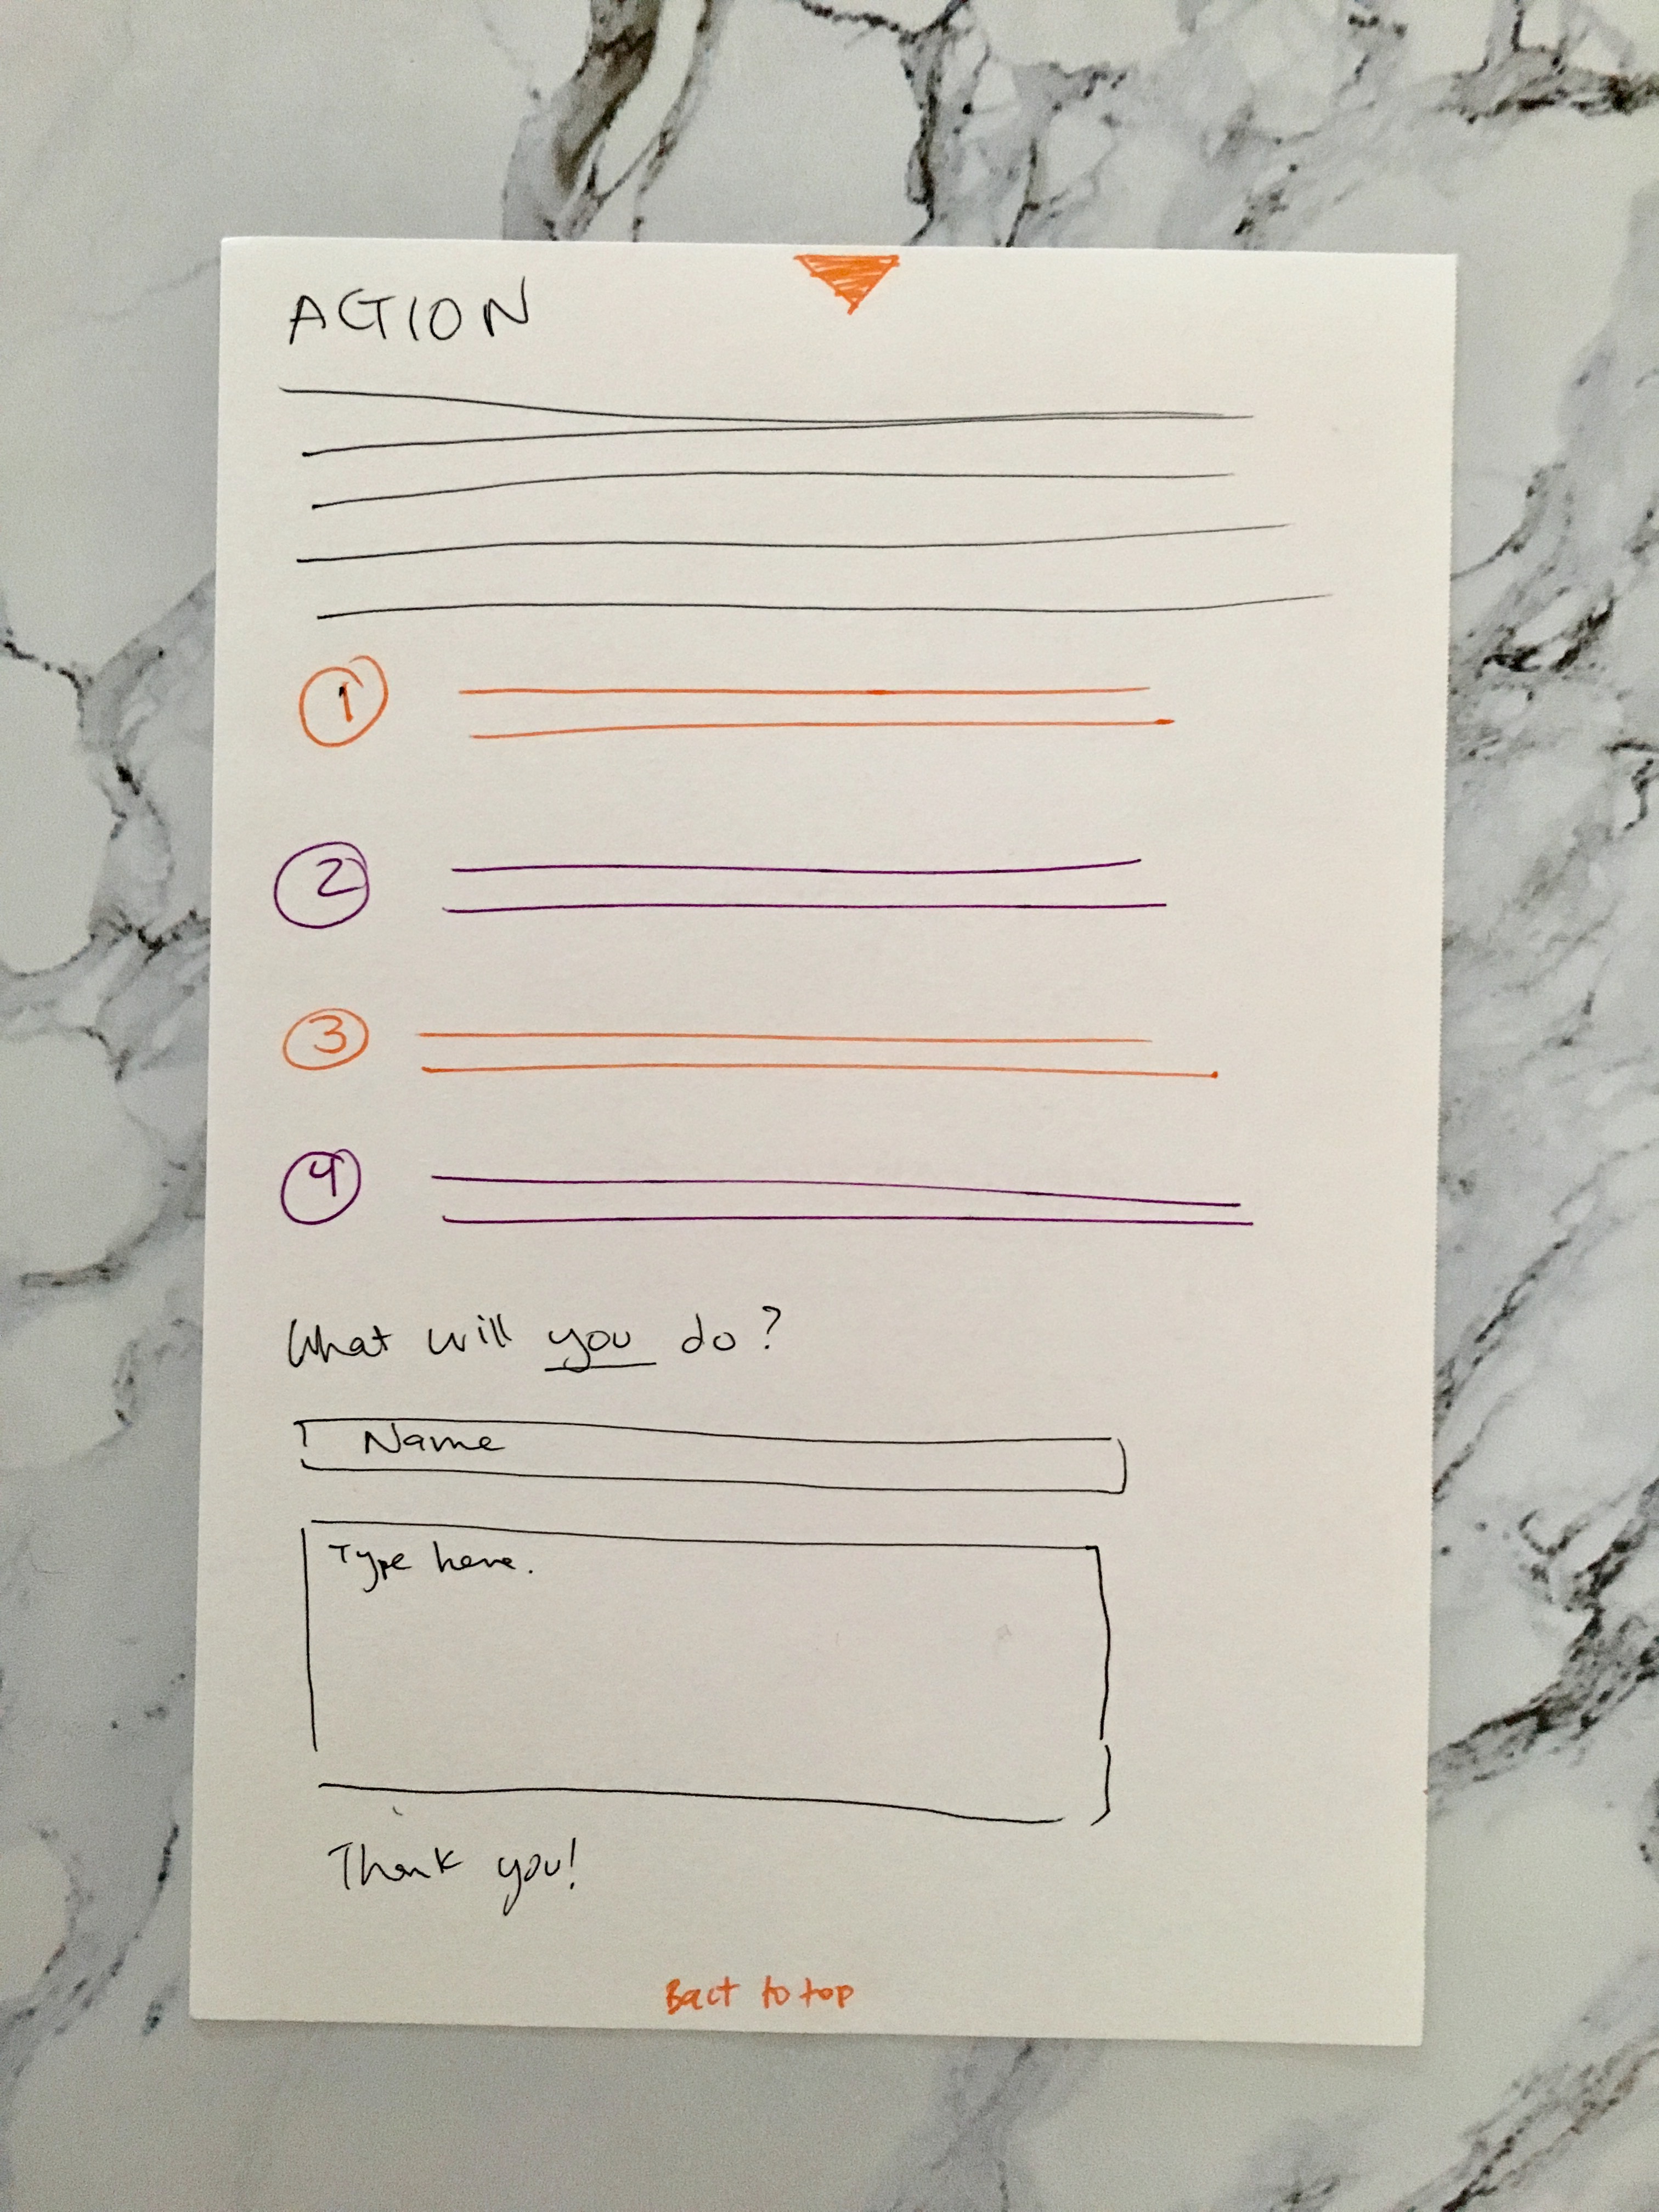 ACTION
1
2
3
4
What will you do?
Name
Type here.
Thank you!
Bact to top